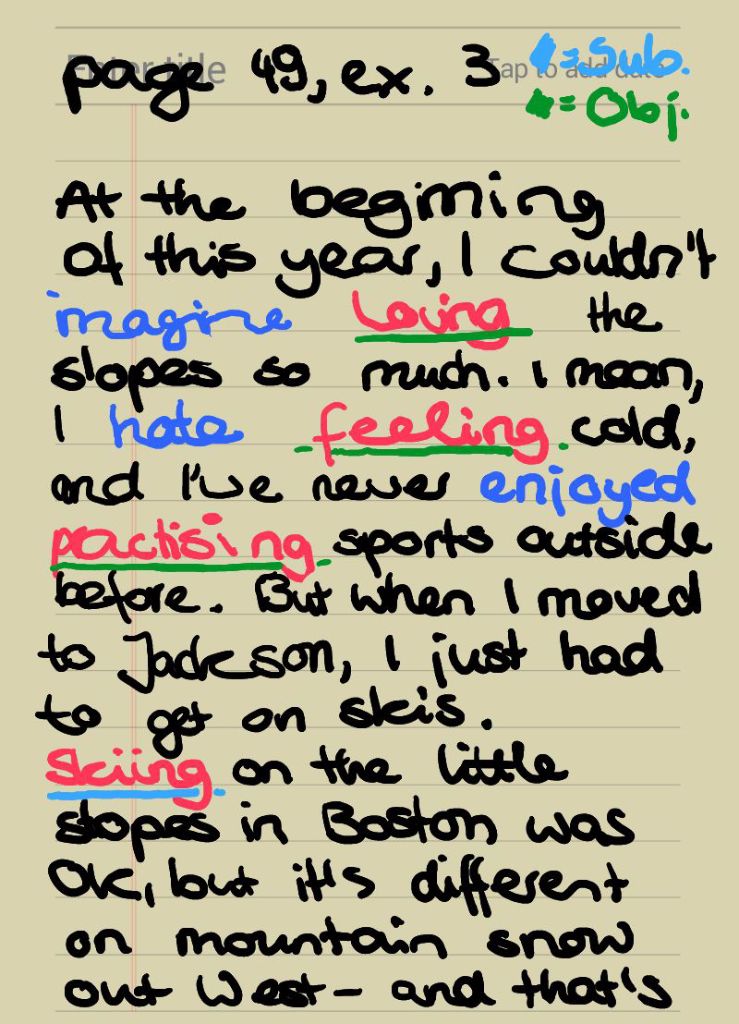 Enter title
Tap to add date
page 49, ex. 3
= Sub.
= Obj.
At the beginning
of this year, I couldn't
imagine loving the
slopes so much. I mean,
I hate feeling cold,
and I've never enjoyed
practising sports outside
before. But when I moved
to Jackson, I just had
to get on skis.
Skiing on the little
slopes in Boston was
OK, but it's different
on mountain snow
out West - and that's